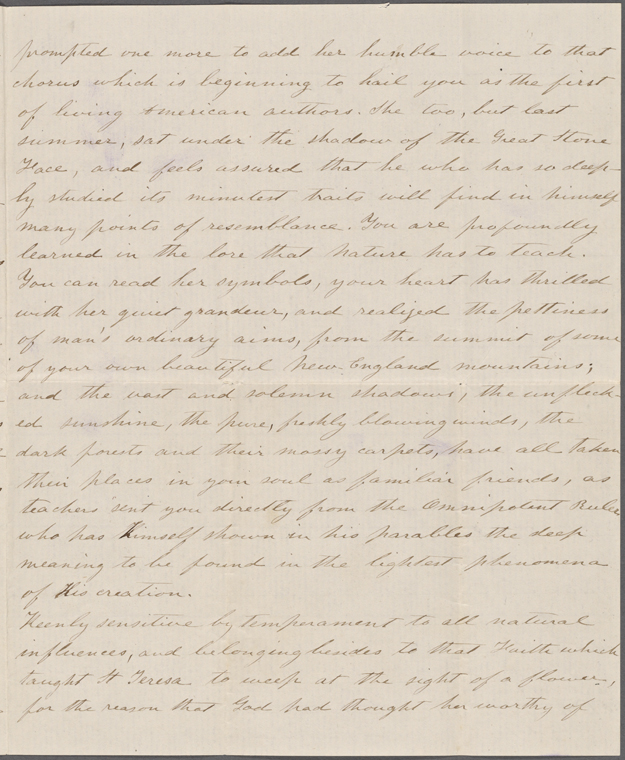 prompted one more to add her humble voice to that
chorus which is beginning to hail you as the first
of living American authors. She too, but last
summer, sat under the shadow of the Great Stone
Face, and feels assured that he who has so deep-
ly studied its minutest traits will find in himself
many points of resemblance. You are profoundly
learned in the lore that nature has to teach.
You can read her symbols, your heart has thrilled
with her quiet grandeur, and realized the pettiness
of man's ordinary aims, from the summit of some
of your own beautiful New-England mountains;
and the vast and solemn shadows, the unfleck-
ed sunshine, the pure, freshly blowing winds, the
dark forests and their mossy carpets, have all taken
their places in your soul as familiar friends, as
teachers sent you directly from the Omnipotent Ruler
who has Himself shown in his parables the deep
meaning to be found in the lightest phenomena
of His creation.
Keenly sensitive by temperament to all natural
influences, and belonging besides to that Faith which
taught St Teresa to weep at the sight of a flower,
for the reason that God had thought her worthy of